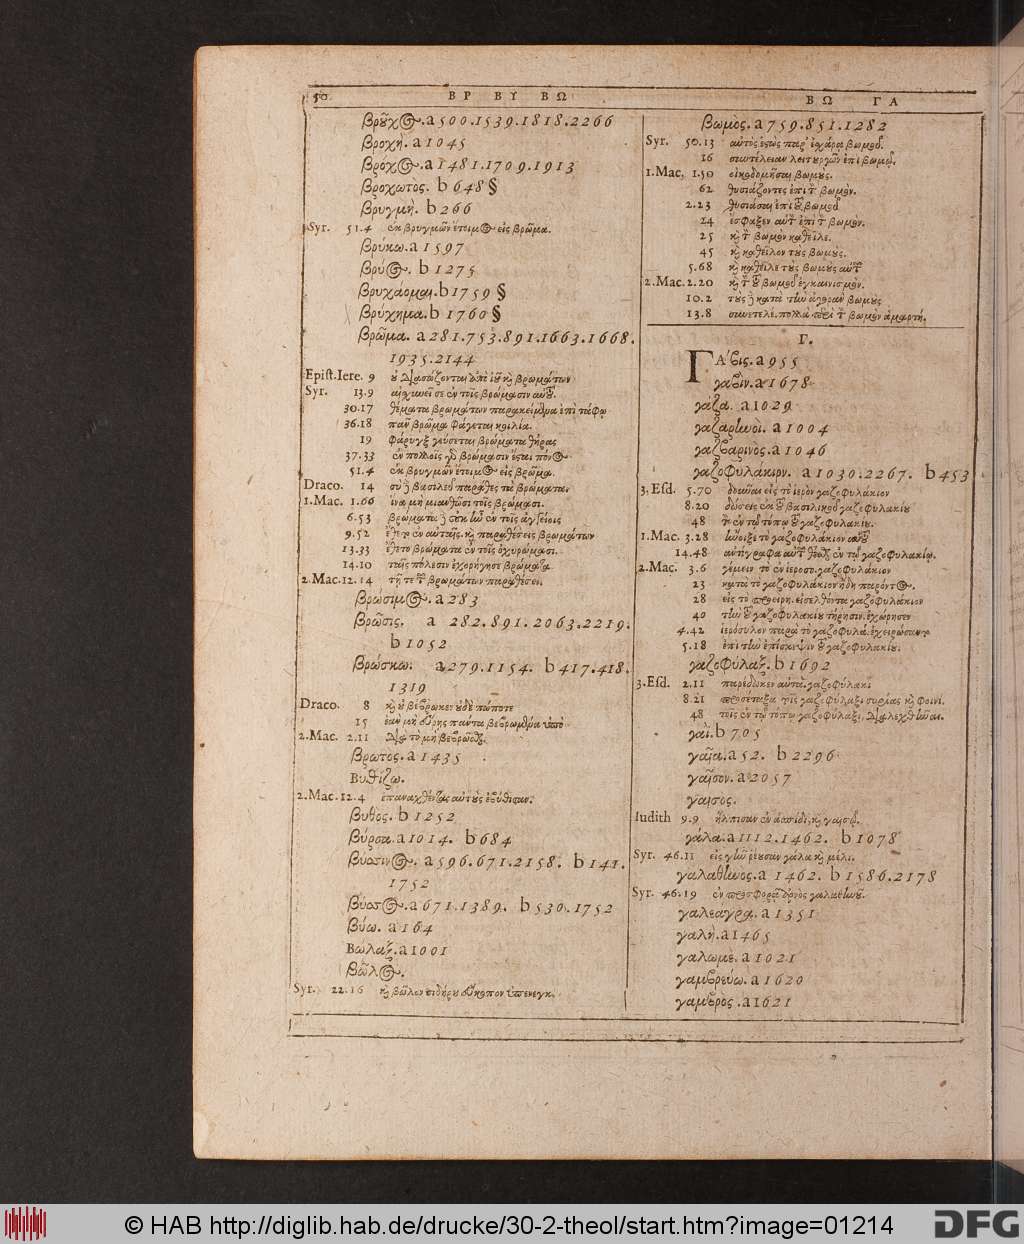 50.
ΒΡ ΒΥ ΒΩ
ΒΩ ΓΑ
βρῦχος. a 500. 1539. 1818. 2266
βροχή. a 1045
βρόχος. a 1481. 1709. 1913
βροχωτός. b 648 §
βρυγμή. b 266
Syr. 51.4 ἐκ βρυγμῶν ἕτοιμος εἰς βρῶμα.
βρύκω. a 1597
βρύος. b 1275
βρυχάομαι. b 1759 §
βρύχημα. b 1760 §
βρῶμα. a 281. 753. 891. 1663. 1668.
1935. 2144
Epist. Iere. 9 βρωμάτων
Syr. 13.9 σε ἐν τοῖς βρώμασιν αὐτοῦ.
30.17 θέματα βρωμάτων παρακείμενα ἐπὶ τάφῳ
36.18 πᾶν βρῶμα φάγεται κοιλία.
19 φάρυγξ γεύσεται βρώματα θήρας
37.33 ἐν πολλοῖς γὸ βρώμασιν ἔσται πόνος
51.4 ἐκ βρυγμῶν ἕτοιμος εἰς βρῶμα.
Draco. 14 σὺ βασιλεῦ παράθες τὰ βρώματα.
1. Mac. 1.66 ἵνα μὴ μιανθῶσι τοῖς βρώμασι.
6.53 βρώματα οὐκ ἦν ἐν τοῖς ἀγγείοις
9.52 ἐν αὐταῖς καὶ παραθέσεις βρωμάτων
13.33 βρώματα ἐν τοῖς ὀχυρώμασι.
14.10 ταῖς πόλεσιν ἐχορήγησε βρώματα
2. Mac. 12.14 τῇ τε τῶν βρωμάτων παραθέσει.
βρώσιμος. a 283
βρῶσις. a 282. 891. 2063. 2219.
b 1052
βρώσκω. a 279. 1154. b 417. 418.
1319
Draco. 8 καὶ οὐ βέβρωκεν οὐδὲ πώποτε
15 ἐὰν μὴ εὕρῃς πάντα βεβρωμένα ὑπὸ
2. Mac. 2.11 διὰ τὸ μὴ βεβρῶσθαι.
βρωτός. a 1435
Βυθίζω.
2. Mac. 12.4 ἐπαναχθέντας αὐτοὺς ἐβύθισαν.
βυθός. b 1252
βύρσα. a 1014. b 684
βύσσινος. a 596. 671. 2158. b 141.
1752
βύσσος. a 671. 1389. b 530. 1752
βύω. a 164
Βώλαξ. a 1001
βῶλος.
Syr. 22.16 καὶ βῶλον σιδήρου εὔκοπον ὑπενεγκ.
βωμός. a 759. 851. 1282
Syr. 50.13 αὐτὸς ἑστὼς παρ' ἐσχάρᾳ βωμοῦ.
16 συντέλειαν λειτουργῶν ἐπὶ βωμῷ.
1. Mac. 1.50 οἰκοδομῆσαι βωμούς.
62 θυσιάζοντες ἐπὶ τὸν βωμόν.
2.23 θυσιάσαι ἐπὶ τοῦ βωμοῦ
24 ἔσφαξεν αὐτὸν ἐπὶ τὸν βωμόν.
25 καὶ τὸν βωμὸν καθεῖλε.
45 καὶ καθεῖλον τοὺς βωμούς.
5.68 καὶ καθεῖλε τοὺς βωμοὺς αὐτῶν
2. Mac. 2.20 καὶ τὸν τοῦ βωμοῦ ἐγκαινισμόν.
10.2 τοὺς κατὰ τὴν ἀγορὰν βωμοὺς
13.8 συνετελέ. πολλὰ περὶ τὸν βωμὸν ἁμαρτή.
Γ.
ΓΑ΄βις. a 955
γαβίν. a 1678
γάζα. a 1029
γαζαρηνοί. a 1004
γαζβαρινός. a 1046
γαζοφυλάκιον. a 1030. 2267. b 453
3. Esd. 5.70 δοῦναι εἰς τὸ ἱερὸν γαζοφυλάκιον
8.20 δώσεις ἐκ τοῦ βασιλικοῦ γαζοφυλακίου
48 ἐν τῷ τόπῳ τοῦ γαζοφυλακίου.
1. Mac. 3.28 ἤνοιξε τὸ γαζοφυλάκιον αὐτοῦ
14.48 ἀντίγραφα αὐτῶν θέσθαι ἐν τῷ γαζοφυλακίῳ.
2. Mac. 3.6 γέμειν τὸ ἐν ἱεροσο. γαζοφυλάκιον
23 κατὰ τὸ γαζοφυλάκιον ἤδη παρόντος.
28 εἰς τὸ προειρη. εἰσελθόντα γαζοφυλάκιον
40 τὴν τοῦ γαζοφυλακίου τήρησιν. ἐχώρησεν
4.42 ἱερόσυλον παρὰ τὸ γαζοφυλά. ἐχειρώσαντο
5.18 ἐπὶ τὴν ἐπίσκεψιν τοῦ γαζοφυλακίου.
γαζοφύλαξ. b 1692
3. Esd. 2.11 παρέδωκεν αὐτὰ. γαζοφύλακι
8.21 προσέταξα τοῖς γαζοφύλαξι συρίας καὶ φοινί.
48 τοῖς ἐν τῷ τόπῳ γαζοφύλαξι. διαλεχθῆναι.
γαί. b 705
γαῖα. a 52. b 2296
γαῖσον. a 2057
γαισός.
Iudith 9.9 ἤλπισαν ἐν ἀσπίδι, καὶ γαισῷ.
γάλα. a 1112. 1462. b 1078
Syr. 46.11 εἰς γῆν ῥέουσαν γάλα καὶ μέλι.
γαλαθηνός. a 1462. b 1586. 2178
Syr. 46.19 ἐν προσφορᾷ ἀρνὸς γαλαθηνοῦ.
γαλεάγρα. a 1351
γαλῆ. a 1465
γαλωμέ. a 1021
γαμβρεύω. a 1620
γαμβρός. a 1621
© HAB http://diglib.hab.de/drucke/30-2-theol/start.htm?image=01214
DFG